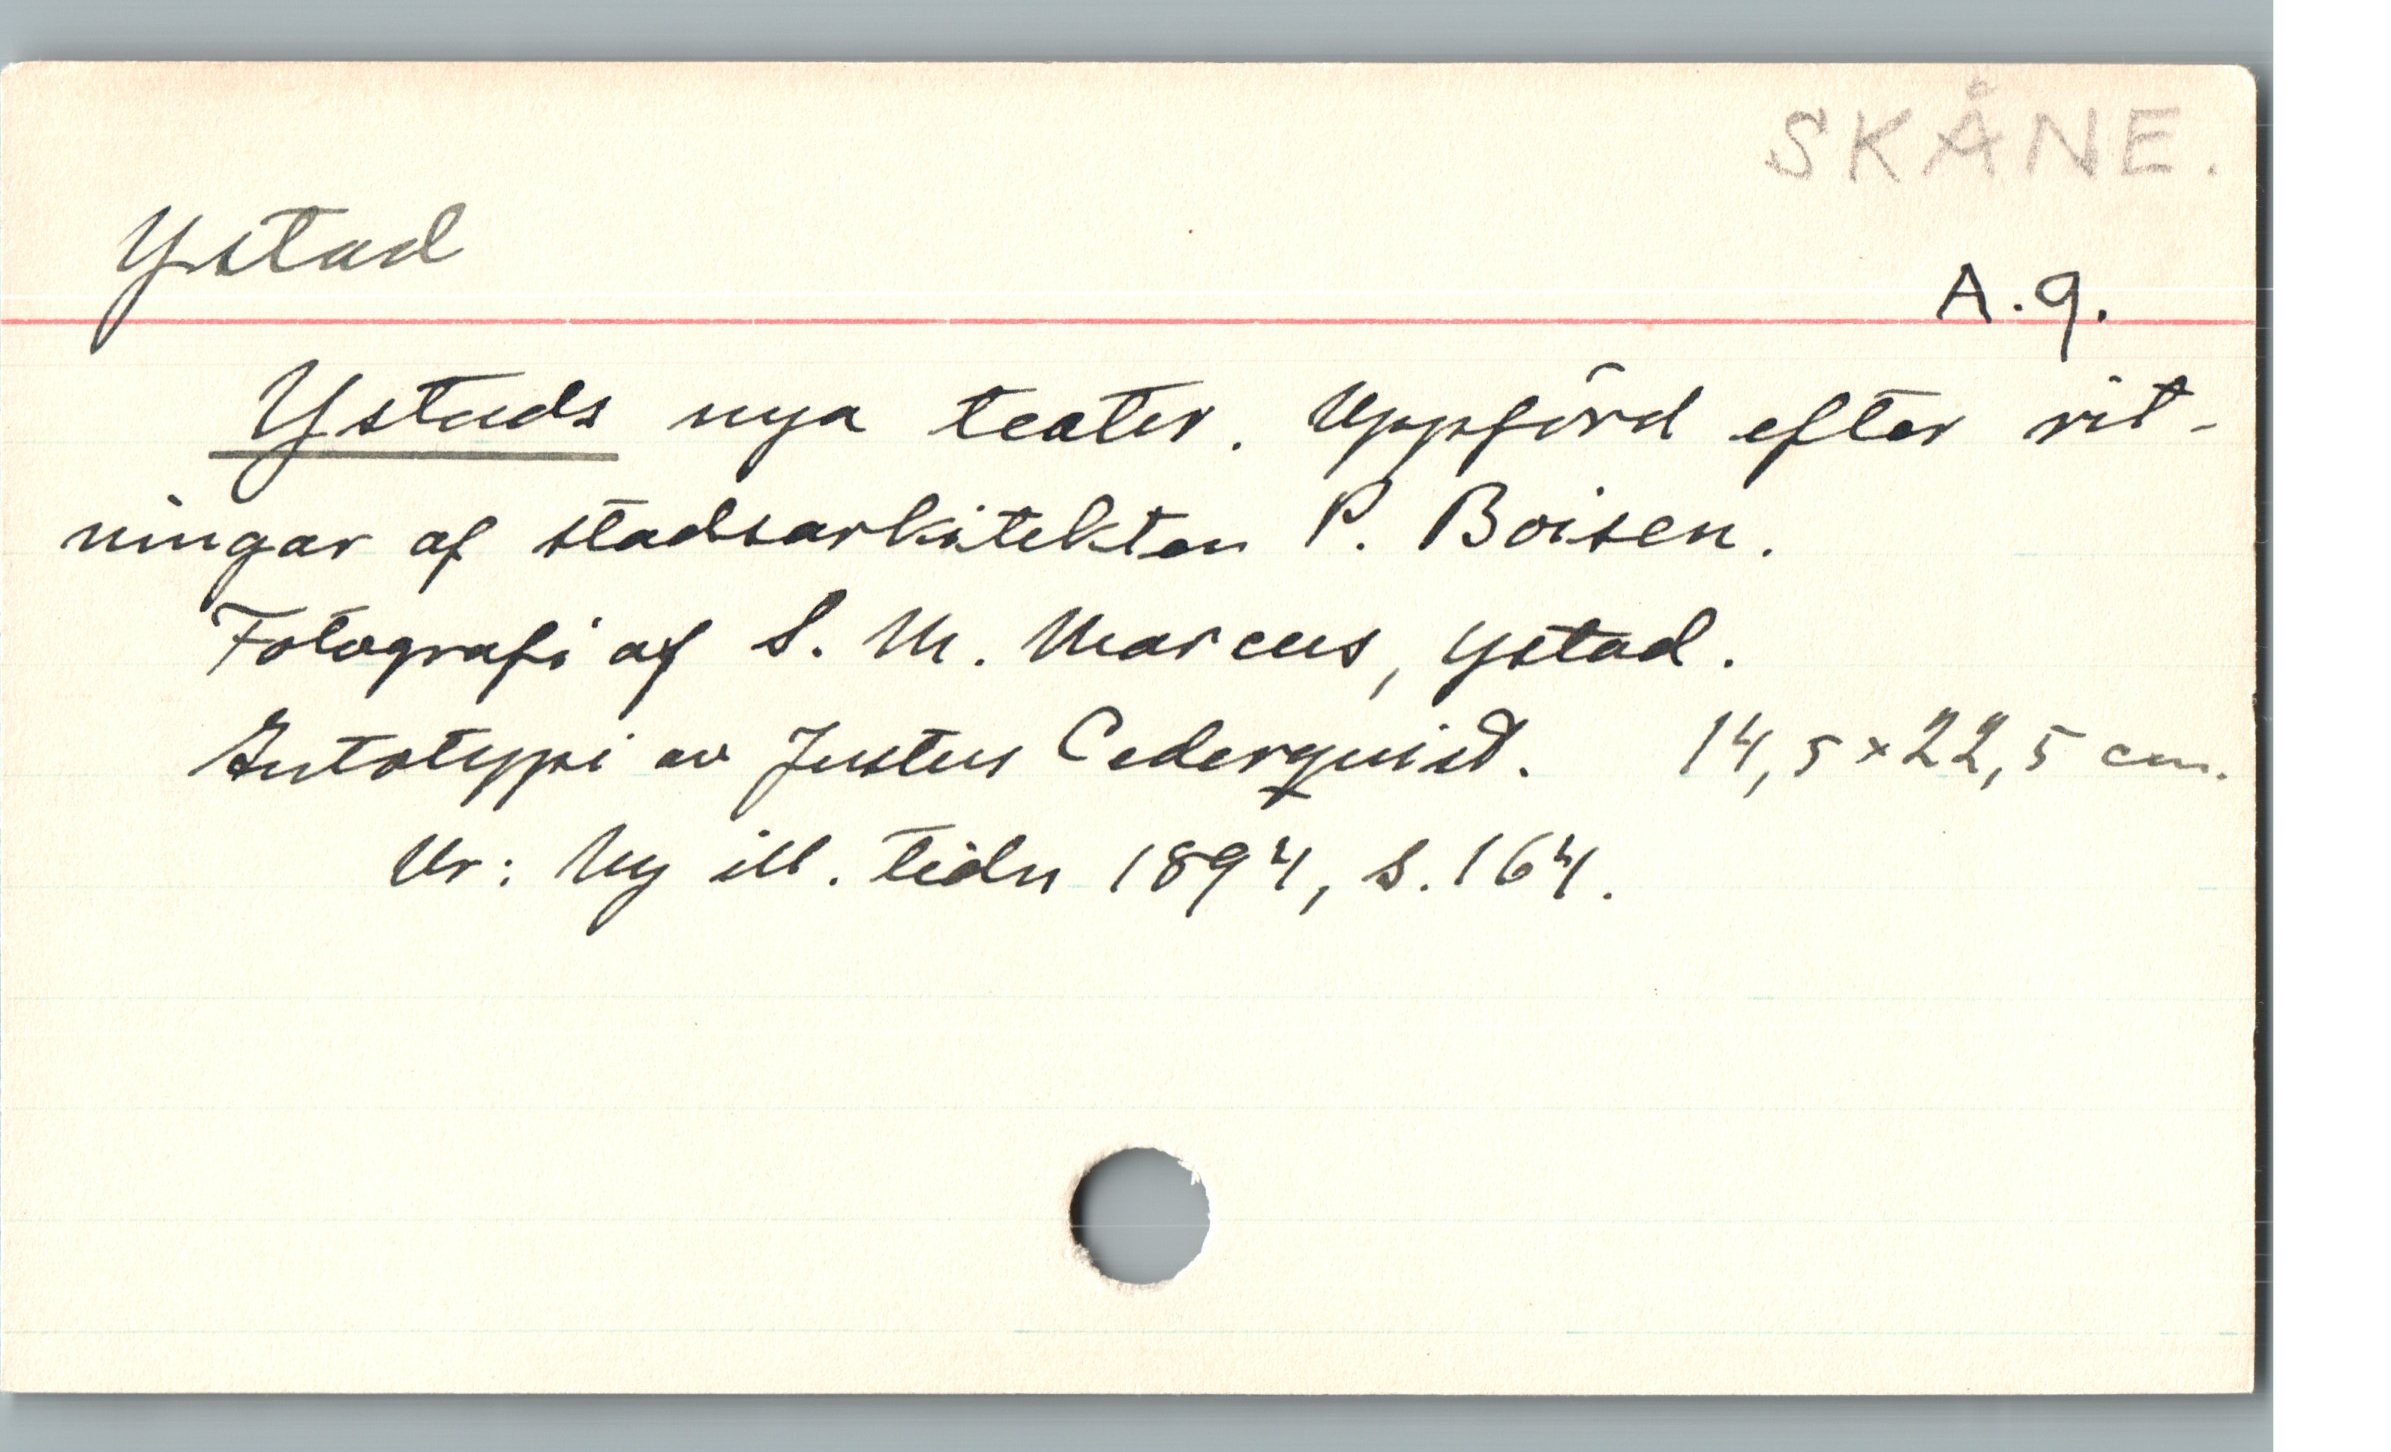 SKÅNE.
Ystad
A.q.
Ystads nya teater. Uppförd efter rit-
ningar af stadsarkitekten P. Boisen.
Fotografi af S. M. Marcus, Ystad.
Autotypi av Justus Cederquist. 14,5 x 22,5 cm.
Ur: Ny ill. tidn 1894, s. 164.